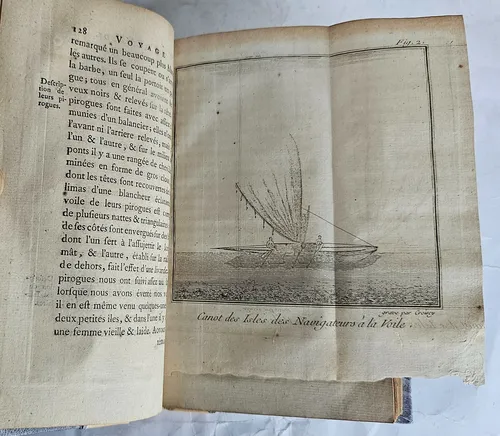 128 VOYAGE
remarqué un beaucoup plus
les autres. Ils se coupent ou
la barbe, un seul la portoit
gue; tous en général avoient
veux noirs & relevés sur la
Descrip-
tion de
leurs pi-
rogues.
pirogues sont faites avec
munies d'un balancier; elles
l'avant ni l'arriere relevés, mais
l'un & l'autre, & sur le milieu
ponts il y a une rangée de
minées en forme de gros
dont les têtes sont recouvertes de
limas d'une blancheur
voile de leurs pirogues est
de plusieurs nattes & triangulaire
de ses côtés sont envergués sur des
dont l'un sert à l'assujettir le
mât, & l'autre, établi sur la
de dehors, fait l'effet d'une
pirogues nous ont suivi assez
lorsque nous avons éventé nos
il en est même venu quelques-unes
deux petites iles, & dans l'une il y
une femme vieille & laide.
Fig. 2.
gravé par Croisey
Canot des Isles des Navigateurs à la Voile.